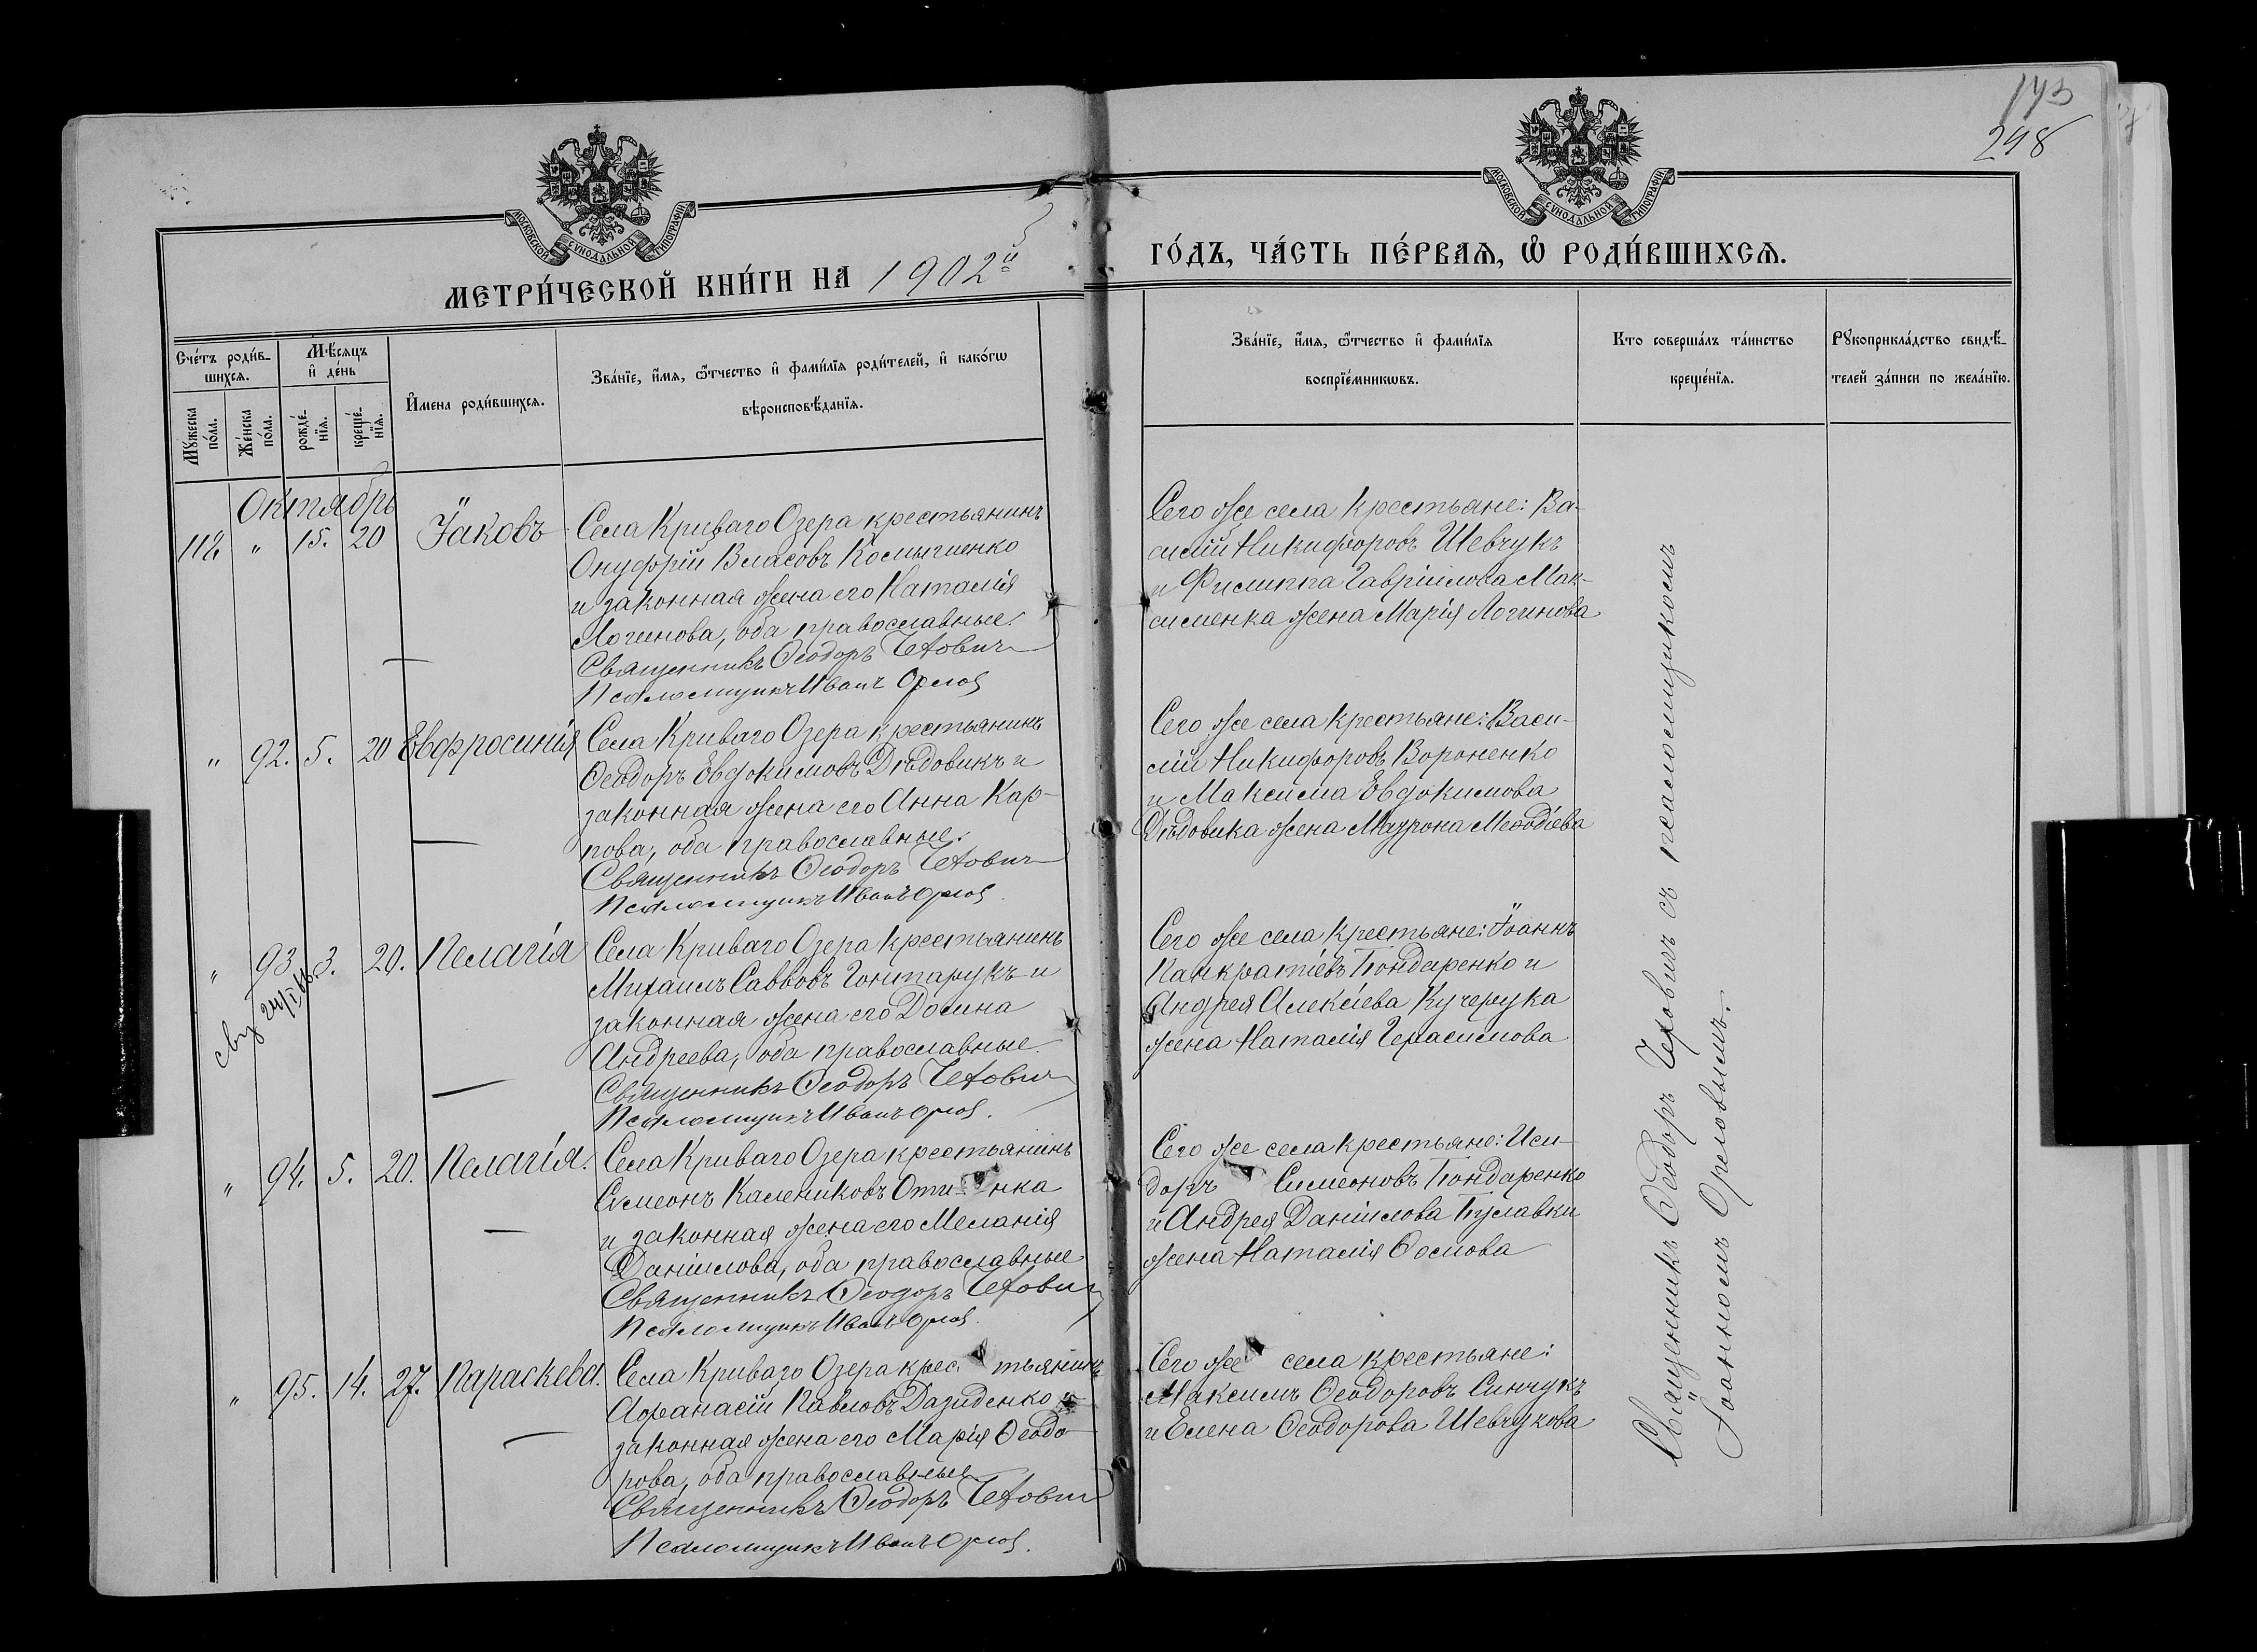 173
298
МОСКОВСКОЙ СУНОДАЛЬНОЙ ТИПОГРАФІИ
МОСКОВСКОЙ СУНОДАЛЬНОЙ ТИПОГРАФІИ
МЕТРИ́ЧЕСКОЙ КНИ́ГИ НА 1902й
ГО́ДЪ, ЧА́СТЬ ПЕ́РВАѦ, Ѡ РОДИ́ВШИХСѦ.
Сче́тъ роди́в-
шихсѧ.
Мѣ́сѧцъ
и де́нь
Мꙋ́жеска
по́ла.
Же́нска
по́ла.
рожде́-
нїѧ.
креще́-
нїѧ.
И҆мена роди́вшихсѧ.
Зва́нїе, и҆́мѧ, ѻ҆́тчество и҆ фами́лїѧ роди́телей, и҆ како́гѡ
вѣроисповѣ́данїѧ.
Зва́нїе, и҆́мѧ, ѻ҆́тчество и҆ фами́лїѧ
воспрїе́мникѡвъ.
Кто̀ соверша́лъ та́инство
креще́нїѧ.
Рꙋкоприкла́дство свидѣ́-
телей за́писи по жела́нїю.
Октябрь
112. " 15. 20 Іаковъ
Села Криваго Озера крестьянинъ
Онуфрій Власовъ Космыченко
и законная жена его Наталія
Логинова, оба православные.
Священникъ Ѳеодоръ Чехович
Псаломщикъ Иванъ Орлов
Сего же села крестьяне: Ва-
силій Никифоровъ Шевчукъ
и Филиппа Гавріилова Мак-
сименка жена Марія Логинова
" 92. 5. 20 Евфросинія
Села Криваго Озера крестьянинъ
Ѳеодоръ Евдокимовъ Дѣдовикъ и
законная жена его Анна Кар-
пова, оба православные.
Священникъ Ѳеодоръ Чехович
Псаломщикъ Иванъ Орлов.
Сего же села крестьяне: Васи-
лій Никифоровъ Вороненко
и Максима Евдокимова
Дѣдовика жена Маѵрона Меѳодіева
" 93. 3. 20. Пелагія
Села Криваго Озера крестьянинъ
Михаилъ Саввовъ Гонтарукъ и
законная жена его Домна
Андреева, оба православные.
Священникъ Ѳеодоръ Чехович
Псаломщикъ Иванъ Орлов.
Сего же села крестьяне: Іоаннъ
Панкратіевъ Бондаренко и
Андрея Алексіева Кучерука
жена Наталія Герасимова
" 94. 5. 20. Пелагія.
Села Криваго Озера крестьянинъ
Симеонъ Калениковъ
и законная жена его Меланія
Даніилова, оба православные
Священникъ Ѳеодоръ Чехович
Псаломщикъ Иванъ Орлов.
Сего же села крестьяне: Иси-
доръ Симеоновъ Бондаренко
и Андрея Даніилова Булавки
жена Наталія Ѳомова
" 95. 14. 27. Параскева.
Села Криваго Озера крес. тьянинъ
Аѳанасій Павловъ Давиденко и
законная жена его Марія Ѳеодо-
рова, оба православные
Священникъ Ѳеодоръ Чехович
Псаломщикъ Иванъ Орлов.
Сего же села крестьяне:
Максимъ Ѳеодоровъ Синчукъ
и Елена Ѳеодорова Шевчукова
Священникъ Ѳеодоръ Чеховичъ съ псаломщикомъ
Іоанномъ Орловымъ.